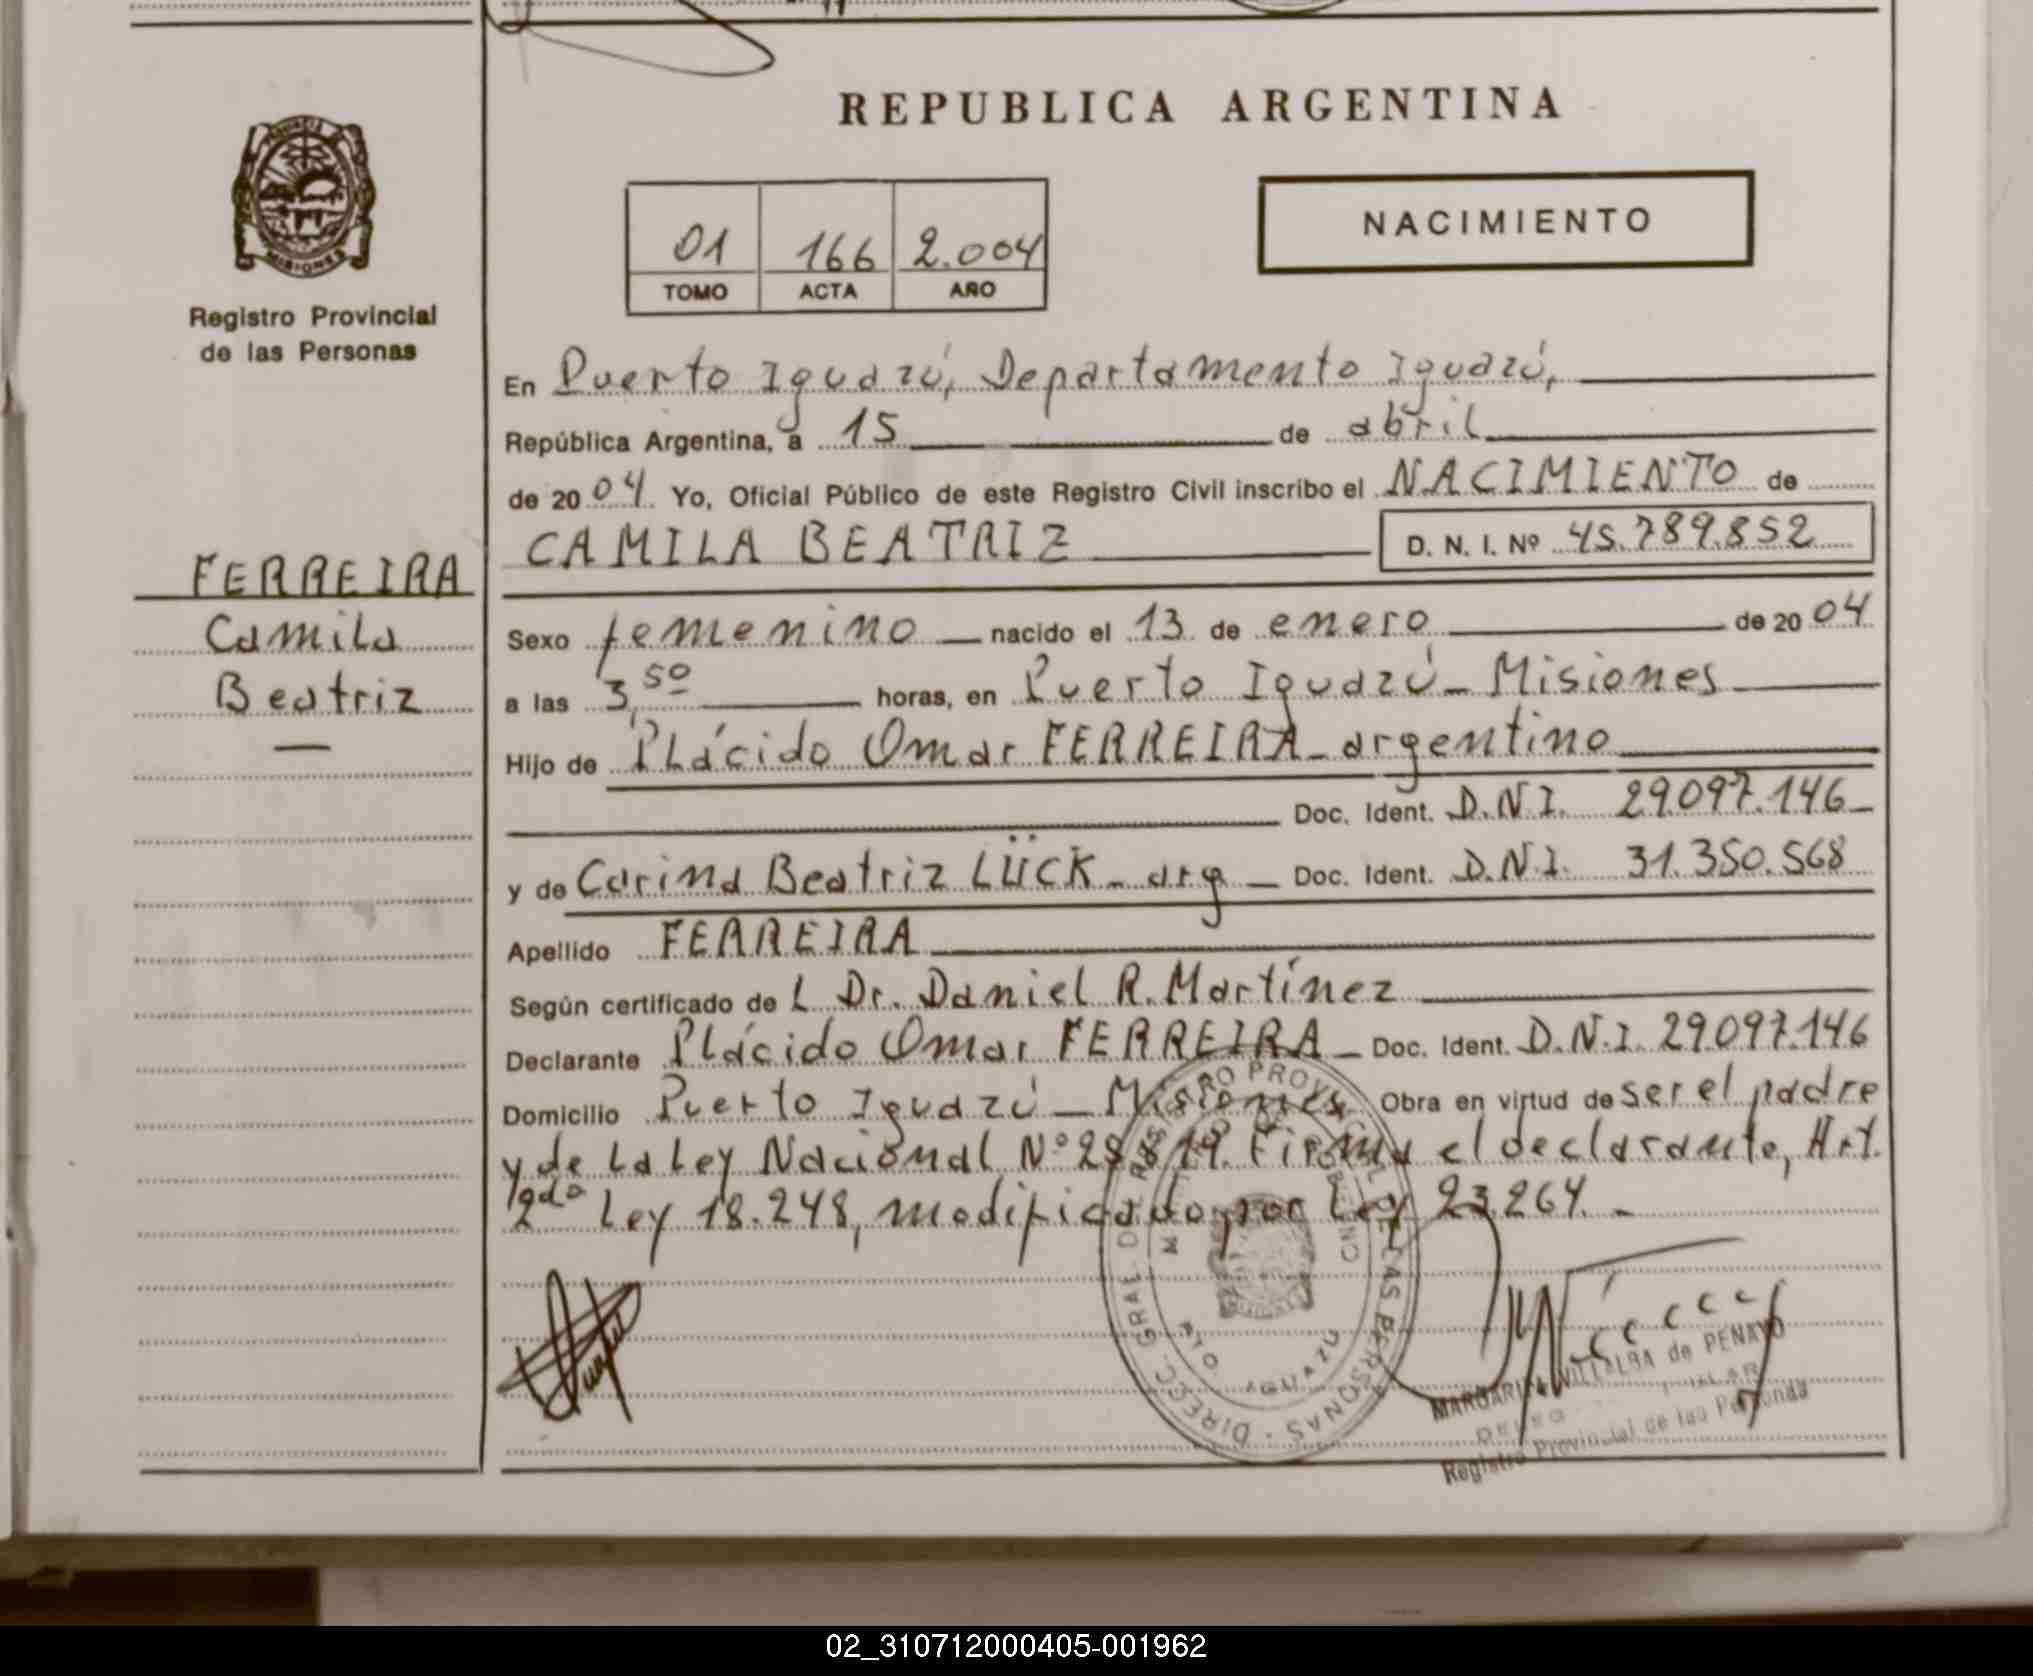 REPUBLICA ARGENTINA
MISIONES
Registro Provincial
de las Personas
01 166 2.004
TOMO ACTA AÑO
NACIMIENTO
En Puerto Iguazú, Departamento Iguazú,
República Argentina, a 15 de abril
de 2004. Yo, Oficial Público de este Registro Civil inscribo el NACIMIENTO de
CAMILA BEATRIZ D. N. I. Nº 45.789.852
FERREIRA
Camila
Beatriz
Sexo femenino nacido el 13 de enero de 2004
a las 3,50 horas, en Puerto Iguazú - Misiones
Hijo de Plácido Omar FERREIRA - argentino
Doc. Ident. D.N.I. 29.097.146
y de Carina Beatriz LÜCK - arg Doc. Ident. D.N.I. 31.350.568
Apellido FERREIRA
Según certificado de L Dr. Daniel R. Martínez
Declarante Plácido Omar FERREIRA - Doc. Ident. D.N.I. 29.097.146
Domicilio Puerto Iguazú - Misiones Obra en virtud de ser el padre
y de la Ley Nacional Nº Firma el declarante, Art.
2da Ley 18.248, modificado por Ley 23.264. -
DIRECC. GRAL. DEL REGISTRO PROVINCIAL DE LAS PERSONAS
PTO IGUAZU
MARGARITA VILLALBA de PENAYO
Registro Provincial de las Personas
02_310712000405-001962